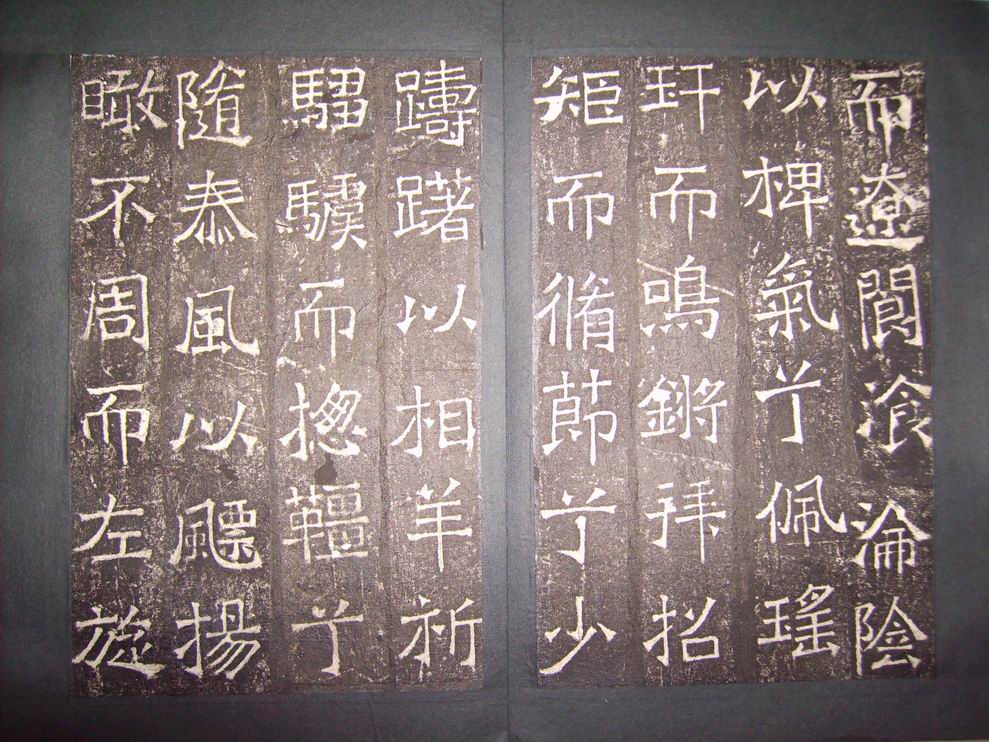 而遼閬飡淪陰
以椑氣兮佩瑤
玕而鳴鏘拜招
矩而脩節兮少
躊躇以相羊祈
騮而摠韁兮
隨泰風以飄揚
瞰不周而左旋